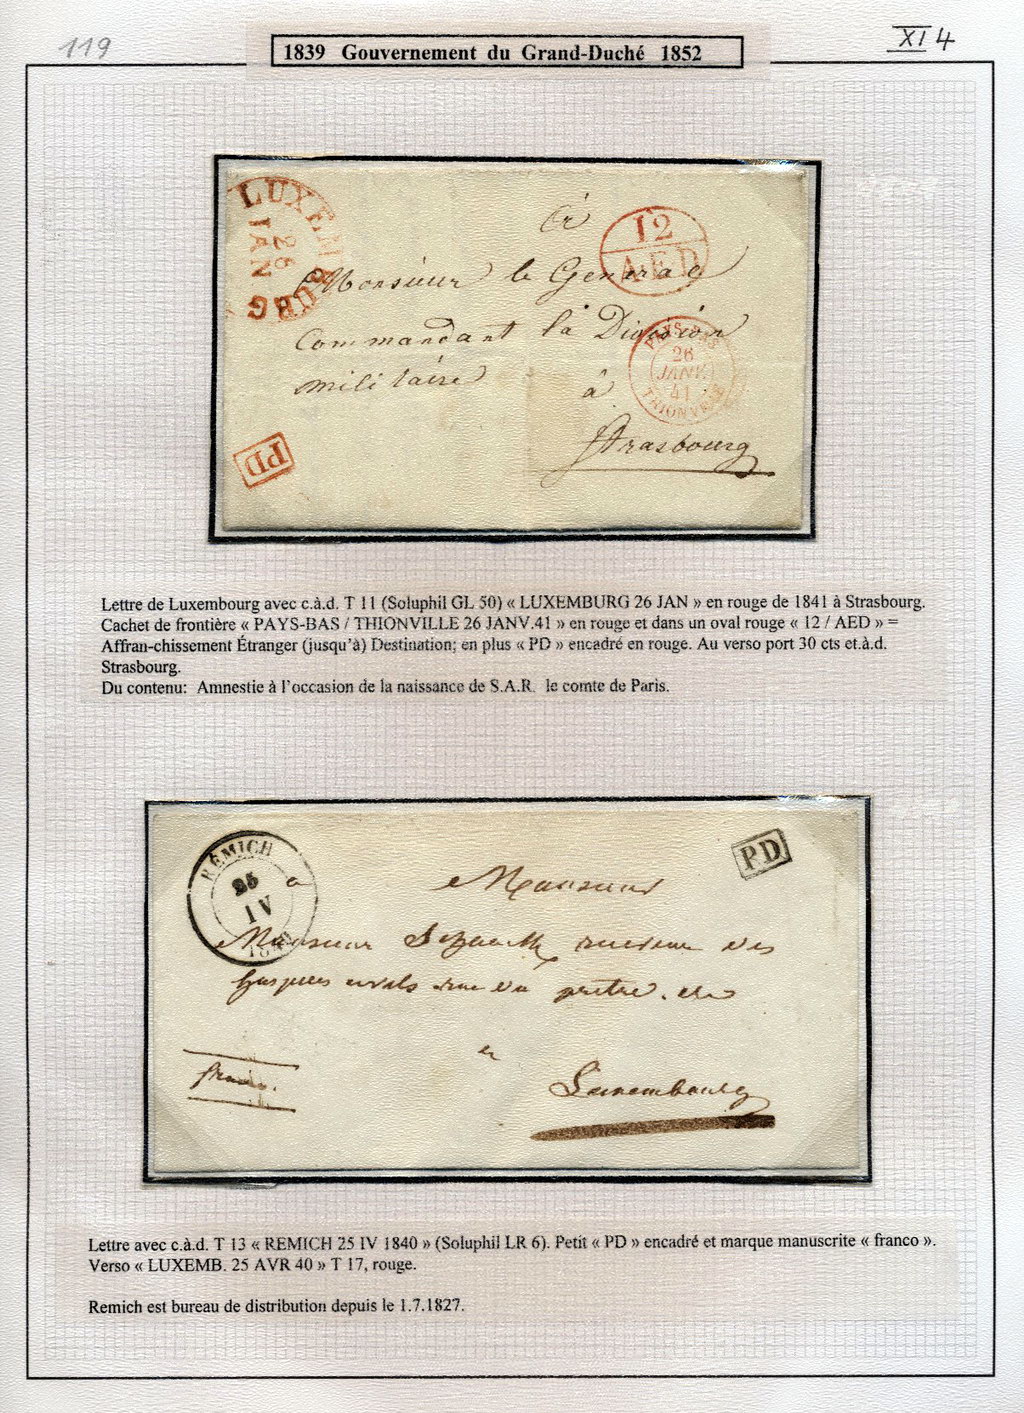 119
XI 4
1839 Gouvernement du Grand-Duché 1852
LUXEMBURG
26
JAN
à
12
AED
Monsieur le General
Commandant la Division
militaire
PAYS-BAS
26
JANV.
41
THIONVILLE
à
Strasbourg
PD
Lettre de Luxembourg avec c.à.d. T 11 (Soluphil GL 50) « LUXEMBURG 26 JAN » en rouge de 1841 à Strasbourg.
Cachet de frontière « PAYS-BAS / THIONVILLE 26 JANV.41 » en rouge et dans un oval rouge « 12 / AED » =
Affran-chissement Étranger (jusqu’à) Destination; en plus « PD » encadré en rouge. Au verso port 30 cts et.à.d.
Strasbourg.
Du contenu: Amnestie à l’occasion de la naissance de S.A.R. le comte de Paris.
REMICH
25
IV
1840
PD
a Monsieur
Monsieur receveur des
hospices civils rue du
franco.
Luxembourg
Lettre avec c.à.d. T 13 « REMICH 25 IV 1840 » (Soluphil LR 6). Petit « PD » encadré et marque manuscrite « franco ».
Verso « LUXEMB. 25 AVR 40 » T 17, rouge.
Remich est bureau de distribution depuis le 1.7.1827.